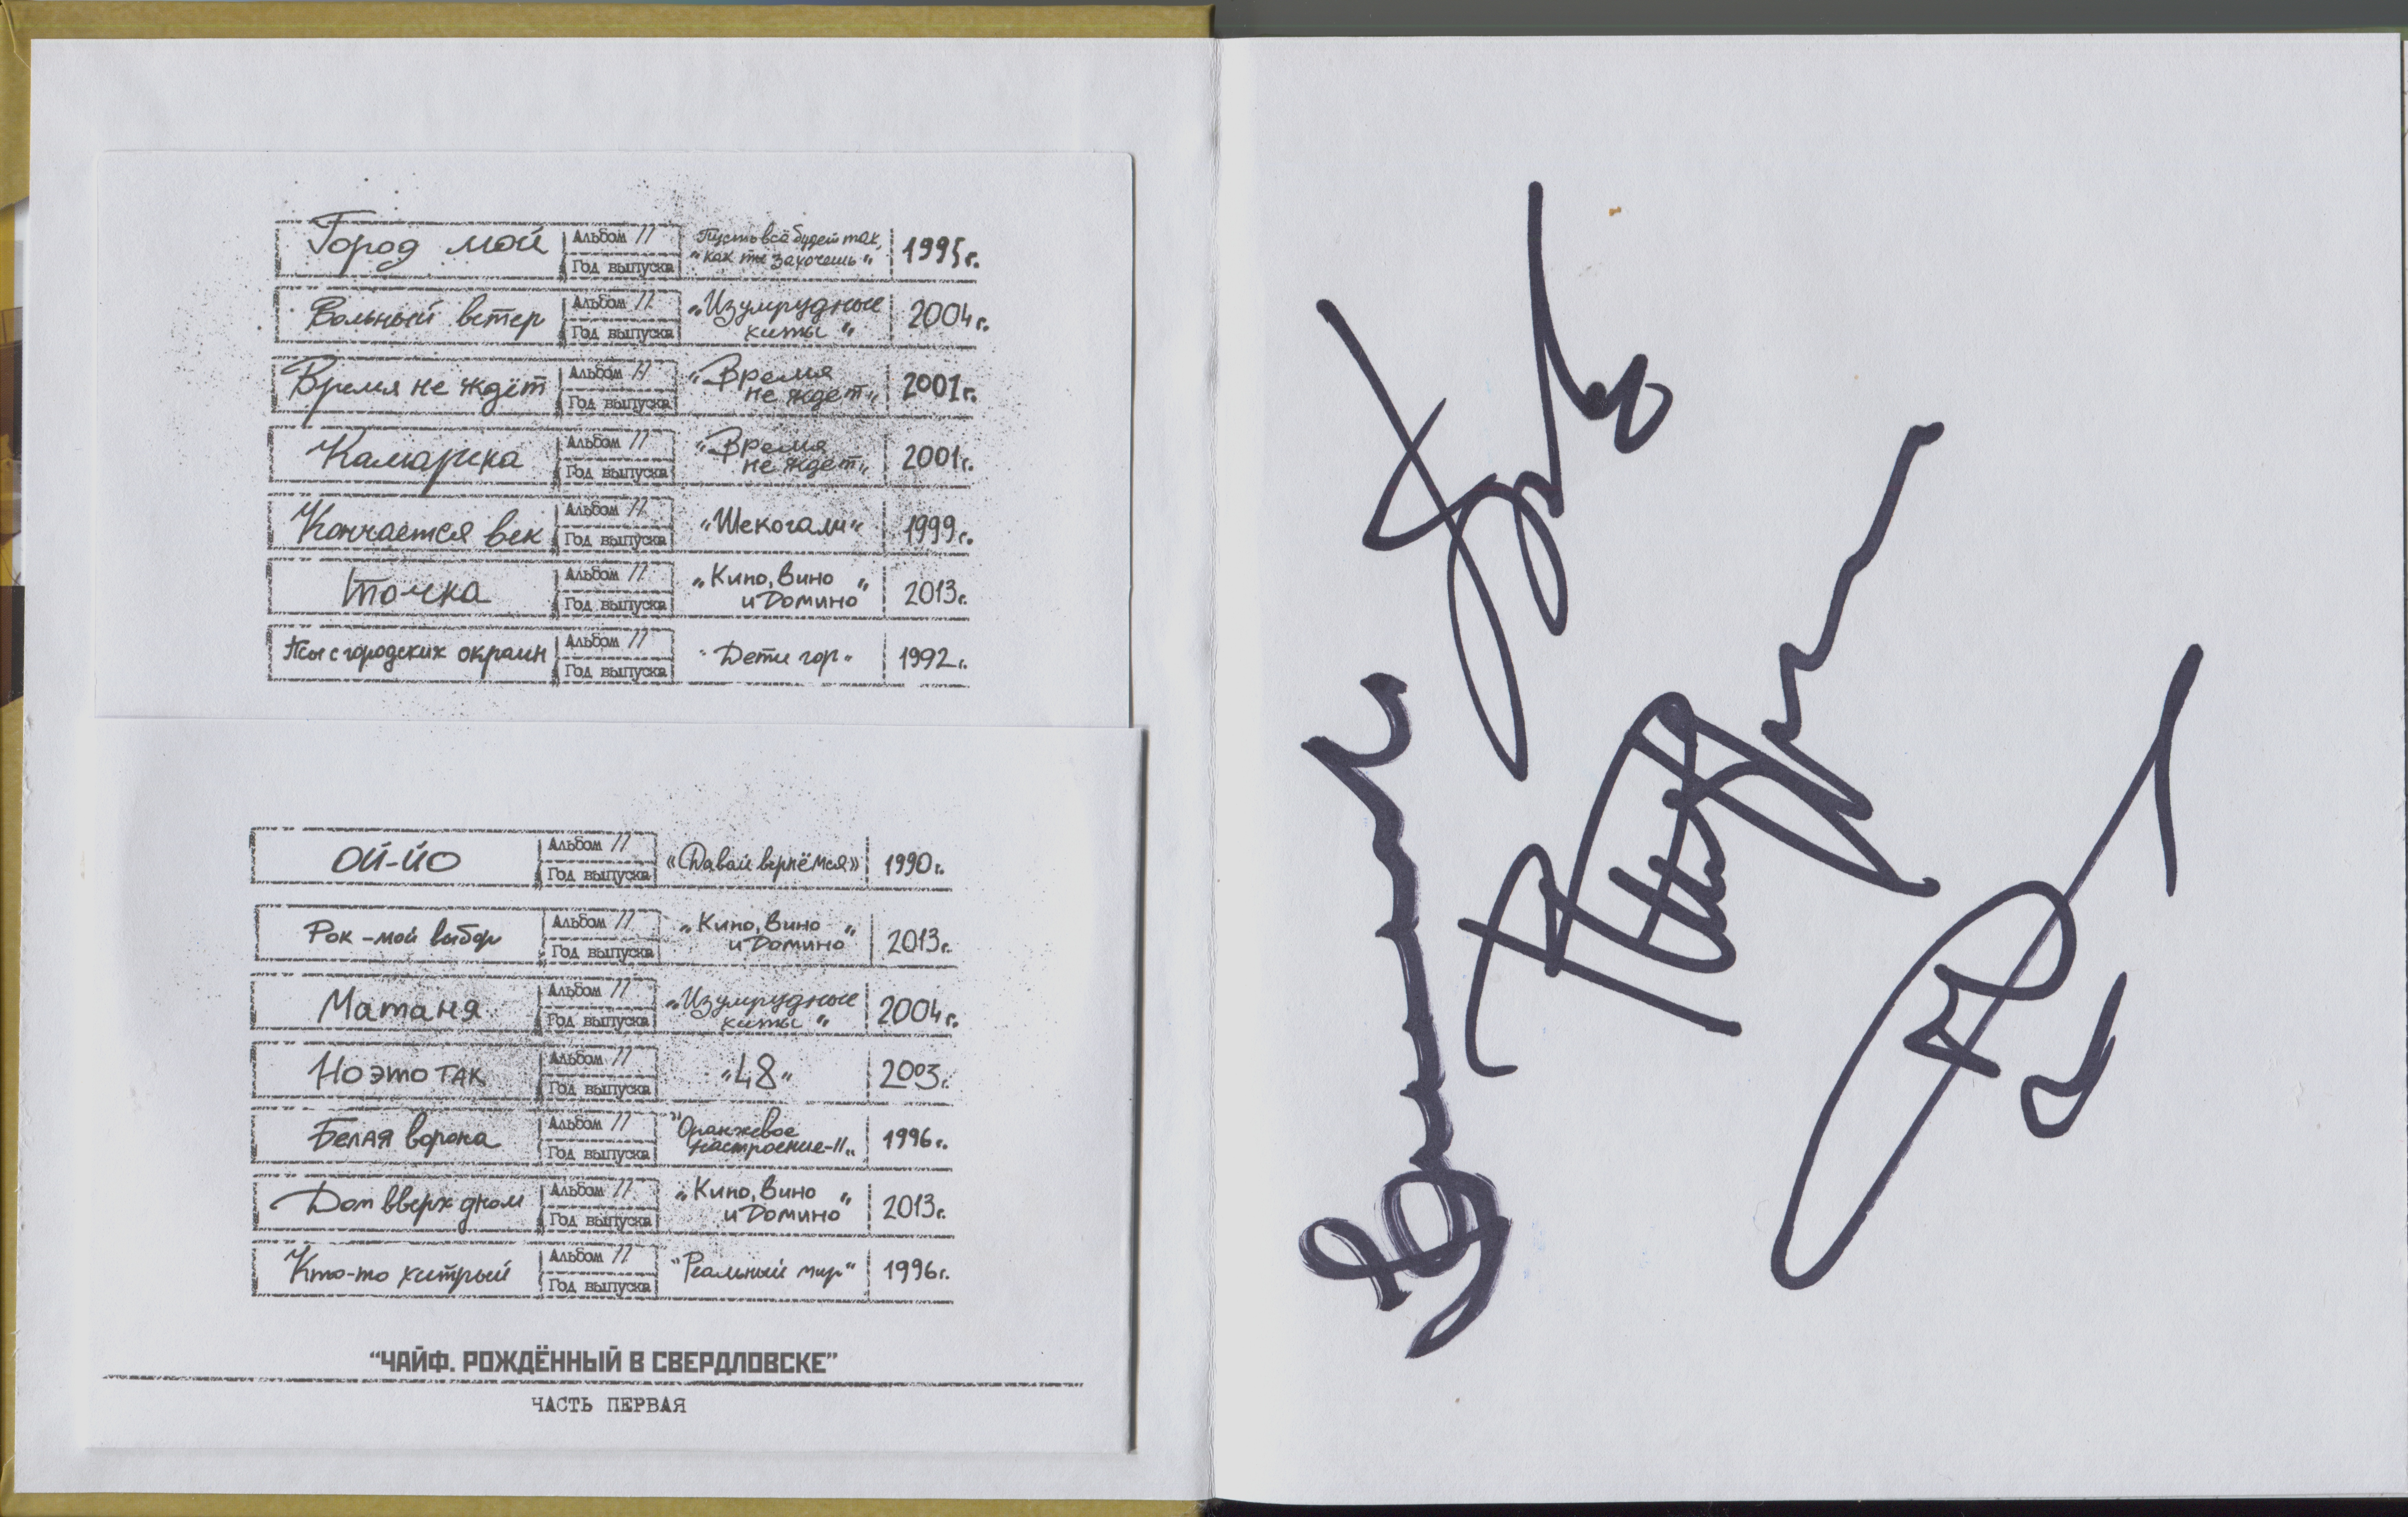 Город мой Альбом // Пусть всё будет так, 1995г.
Год выпуска "как ты захочешь"
Вольный ветер Альбом // "Изумрудные 2004г.
Год выпуска хиты"
Время не ждёт Альбом // "Время 2001г.
Год выпуска не ждёт"
Камарика Альбом // "Время 2001г.
Год выпуска не ждёт"
Кончается век Альбом // "Шекогали" 1999г.
Год выпуска
Точка Альбом // "Кино, вино 2013г.
Год выпуска и домино"
Псы с городских окраин Альбом // "Дети гор" 1992г.
Год выпуска
ОЙ-ЙО Альбом // «Давай вернёмся» 1990г.
Год выпуска
Рок - мой выбор Альбом // "Кино, вино 2013г.
Год выпуска и домино"
Матаня Альбом // "Изумрудные 2004г.
Год выпуска хиты"
Но это так Альбом // "48" 2003г.
Год выпуска
Белая ворона Альбом // "Оранжевое 1996г.
Год выпуска настроение-II"
Дом вверх дном Альбом // "Кино, вино 2013г.
Год выпуска и домино"
Кто-то хитрый Альбом // "Реальный мир" 1996г.
Год выпуска
"ЧАЙФ. РОЖДЁННЫЙ В СВЕРДЛОВСКЕ"
ЧАСТЬ ПЕРВАЯ